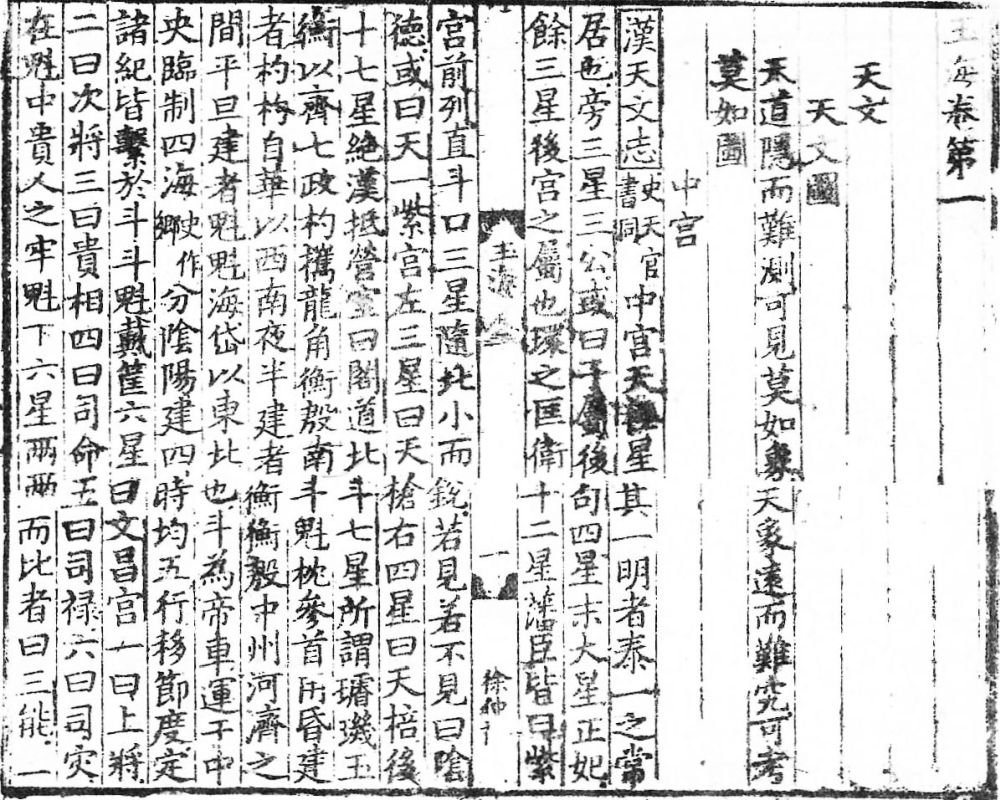 玉海卷第一
天文
天文圖
天道隱而難測可見莫如象天象遠而難究可考
莫如圖
中宮
漢天文志史天官書同中宮天極星其一明者泰一之常
居也旁三星三公或曰子屬後句四星末大星正妃
餘三星後宮之屬也環之匡衛十二星藩臣皆曰紫
玉海 一 徐仲
宮前列直斗口三星隨北小而銳若見若不見曰陰
德或曰天一紫宮左三星曰天槍右四星曰天棓後
十七星絶漢抵營室曰閣道北斗七星所謂璿璣玉
衡以齊七政杓攜龍角衡殷南斗魁枕參首用昏建
者杓杓自華以西南夜半建者衡衡殷中州河濟之
間平旦建者魁魁海岱以東北也斗為帝車運于中
央臨制四海史作鄉分陰陽建四時均五行移節度定
諸紀皆繫於斗斗魁戴筐六星曰文昌宮一曰上將
二曰次將三曰貴相四曰司命五曰司禄六曰司災
在魁中貴人之牢魁下六星兩兩而比者曰三能